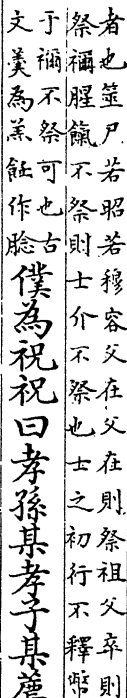 者也筮尸若昭若穆容父在父在則祭祖父卒則
祭禰腥餼不祭則士介不祭也士之初行不釋幣
于禰不祭可也古
文羹為羔飪作腍
僕為祝祝曰孝孫某孝子某薦